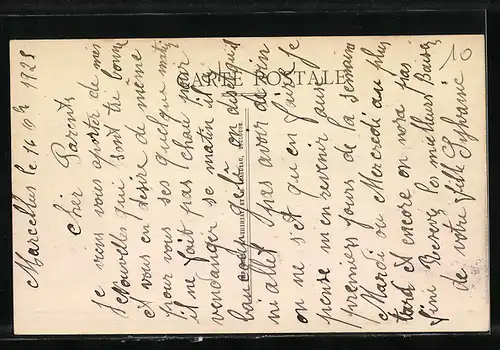 Marcellus le 16 1928
Cher Parents
Je viens vous aporter de mes
Nouvelles qui sont tre bonne
et vous en desire de meme
pour vous ses quelque
il ne fait pas chau pour
vendanger se matin il
baucoup gelé on disai que
ni allet pas avoir de vin
on ne s et que en faire Je
pense m en revenir aus
premiers jours de la semaine
Mardi ou Mercredi au plus
tard et encore on nora pas
fini Recevez les meilleurs Baisers
de votre fille
CARTE POSTALE
10